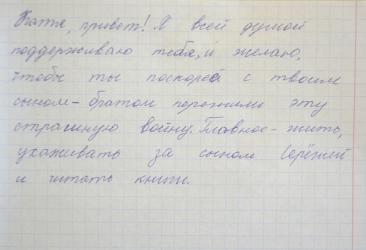 Катя, привет! Я всей душой
поддерживаю тебя, и желаю,
чтобы ты поскорей с твоим
сыном-братом пережили эту
страшную войну. Главное - жить,
ухаживать за сыном Серёжей
и читать книги.